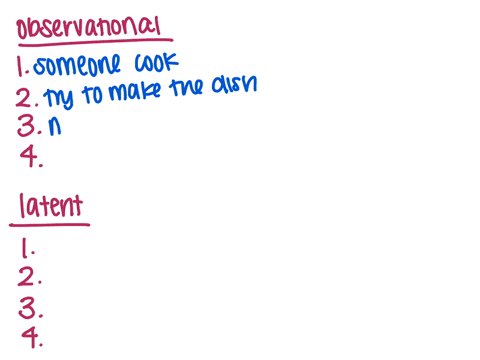 observational
1. someone cook
2. try to make the dish
3. n
4.
latent
1.
2.
3.
4.